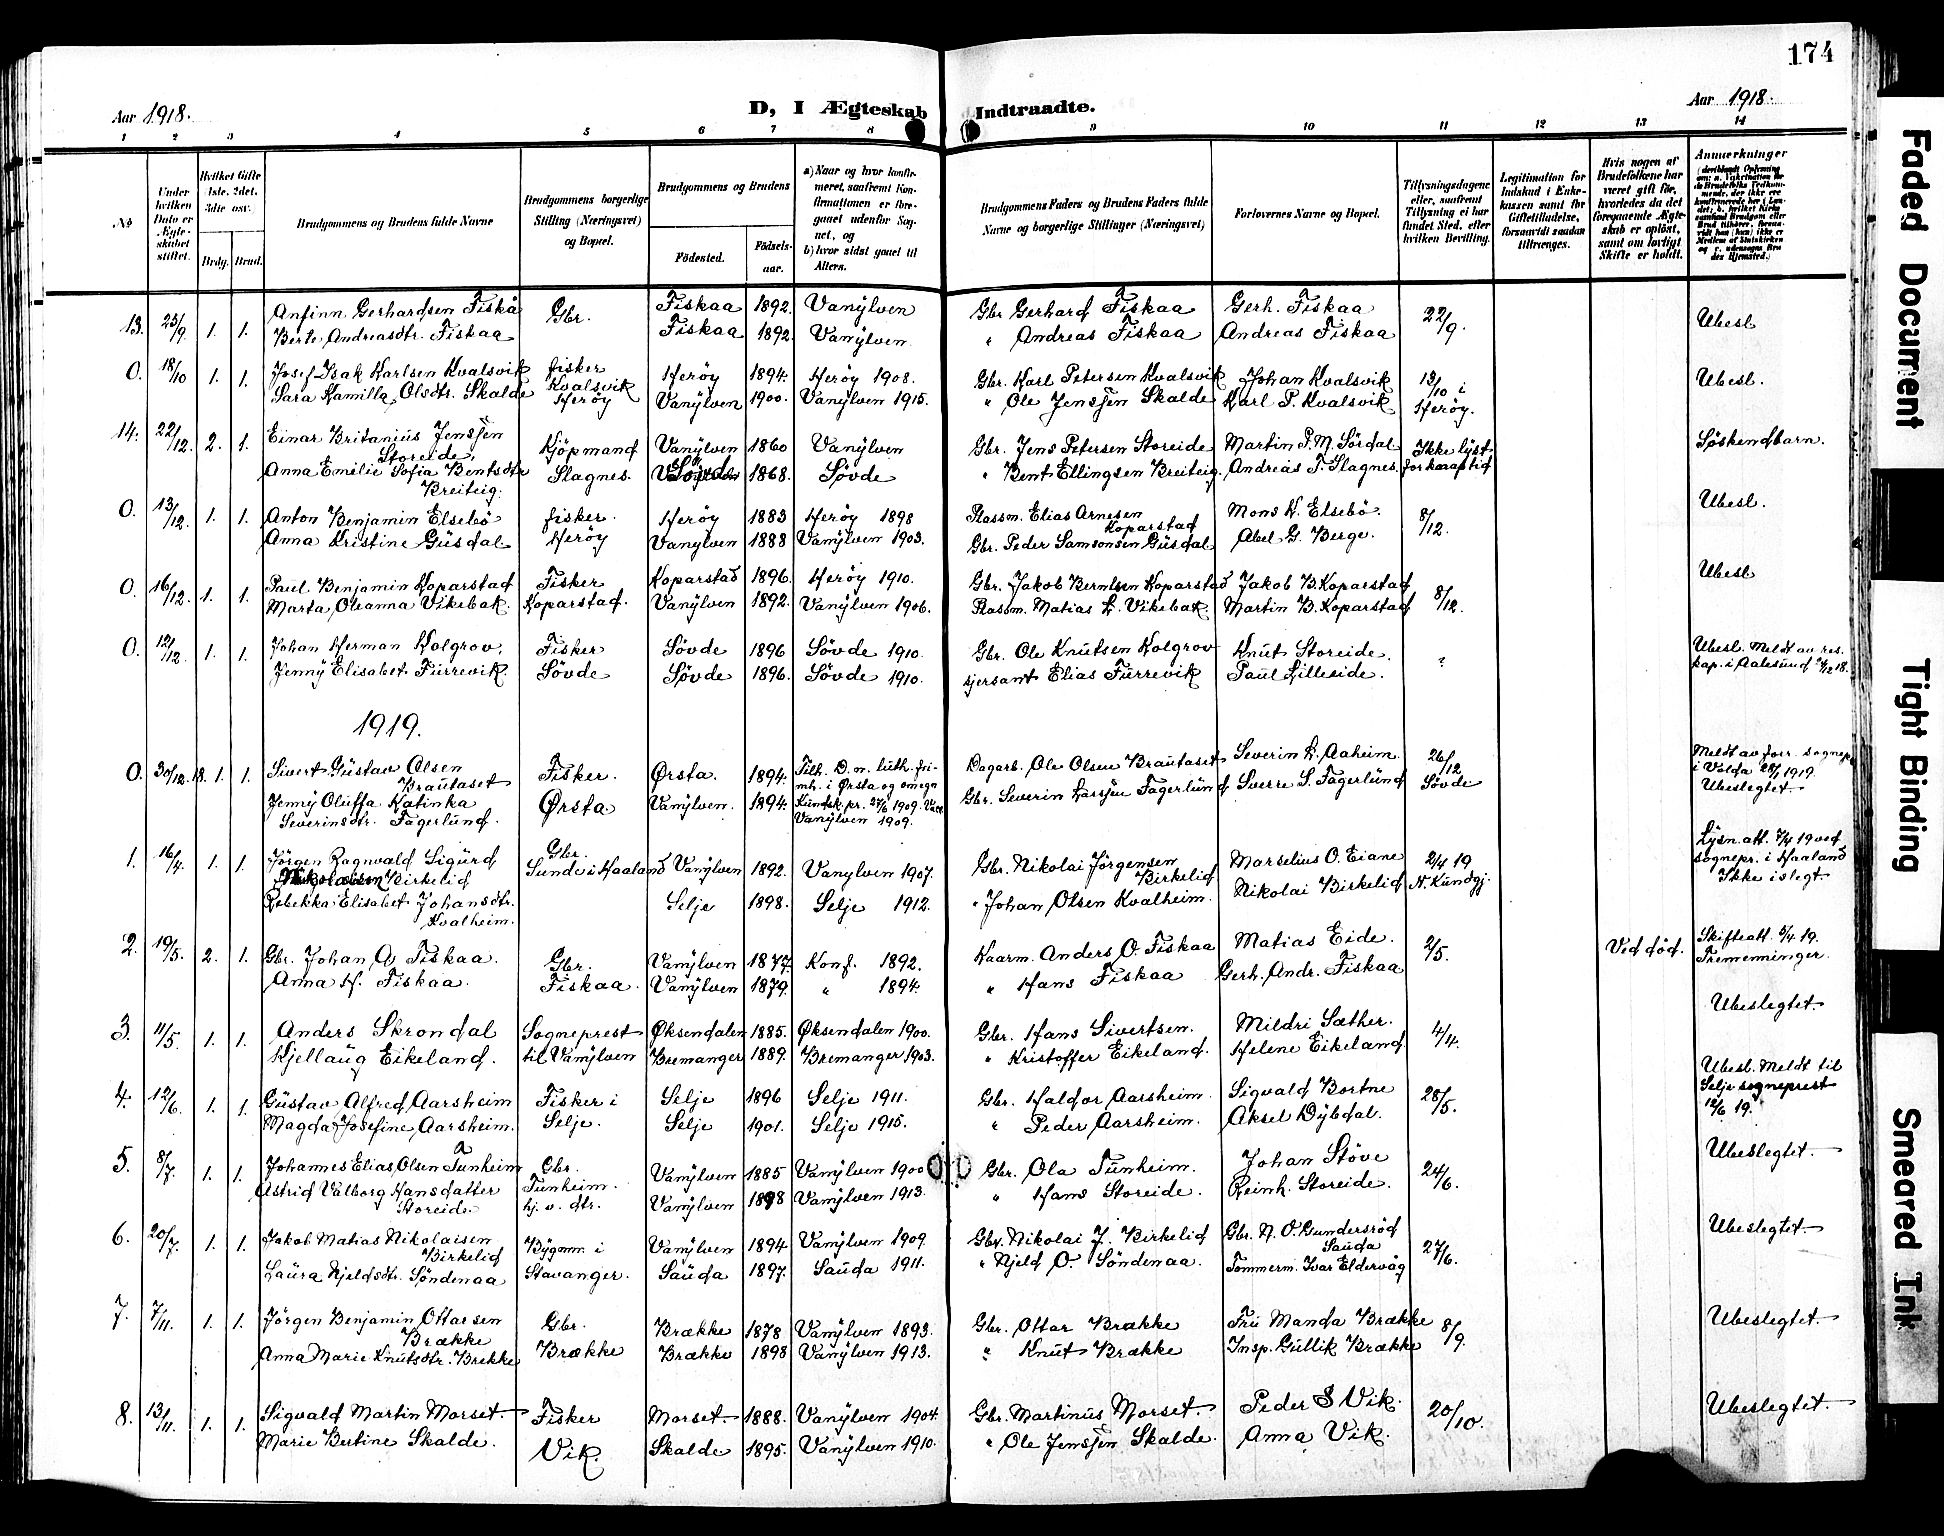 174
Aar 1918.
D, I Ægteskab Indtraadte.
Aar 1918.
1 2 3 4 5 6 7 8 9 10 11 12 13 14
No
Under hvilken Dato er Ægteskabet stiftet.
Hvilket Gifte 1ste, 2det, 3die osv.)
Brdg. Brud.
Brudgommens og Brudens fulde Navne
Brudgommens borgerlige Stilling (Næringsvei) og Bopæl.
Brudgommens og Brudens
Födested.
Födselsaar.
a) Naar og hvor konfirmeret, saafremt Konfirmationen er foregaaet udenfor Sognet, og
b) hvor sidst gaaet til Alters.
Brudgommens Faders og Brudens Faders fulde Navne og borgerlige Stillinger (Næringsvei)
Forlovernes Navne og Bopæl.
Tillysningsdagene eller, saafremt Tillysning ei har fundet Sted, efter hvilken Bevilling.
Legitimation for Indskud i Enkekassen samt for Giftetilladelse, forsaavidt saadan tiltrænges.
Hvis nogen af Brudefolkene har været gift för, hvorledes da det foregaaende Ægteskab er oplöst, samt om lovligt Skifte er holdt.
Anmerkninger
13. 25/9 1. 1. Anfinn Gerhardsen Fiskå Gbr. Fiskaa 1892. Vanÿlven Gbr Gerhard Fiskaa Gerh. Fiskaa 22/9. Ubesl
Berte Andreasdtr. Fiskaa Fiskaa 1892. Vanÿlven. " Andreas Fiskaa Andreas Fiskaa
0. 18/10 1. 1. Josef Isak Karlsen Kvalsvik fisker Herøy 1894. Herøy 1908. Gbr. Karl Petersen Kvalsvik Johan Kvalsvik 13/10 i Ubesl.
Sara Kamilla Olsdtr. Skalde Kvalsvik Herøy Vanÿlven 1900. Vanÿlven 1915. " Ole Jenssen Skalde Karl P. Kvalsvik Herøy.
14. 22/12. 2. 1. Einar Britanius Jenssen Storeide, Kjöpmand Vanÿlven 1860 Vanÿlven Gbr. Jens Petersen Storeide Martin P. M. Sördal Ikke lyst Søskendbarn.
Anna Emelie Sofia Bentsdtr Breiteig. Slagnes. Søvde 1868. Søvde " Bent Ellingsen Breiteig. Andreas T. Slagnes.
0. 13/12. 1. 1. Anton Benjamin Elsebö fisker. Herøy 1883 Herøy 1898 Plassm. Elias Arnesen Koparstad Mons K. Elsebö. 8/12. Ubesl.
Anna Kristine Güsdal Herøy Vanylven 1888 Vanÿlven 1903. Gbr. Peder Samsonsen Güsdal Abel G. Berge.
0. 16/12. 1. 1. Paul Benjamin Koparstad Fisker Koparstad 1896. Herøy 1910. Gbr. Jakob Berntsen Koparstad Jakob B. Koparstad 8/12. Ubesl
Marta Oleanna Vikebak. Koparstad. Vanÿlven 1892. Vanÿlven 1906. Plassm. Matias L. Vikebak. Martin B. Koparstad
0. 12/12. 1. 1. Johan Herman Kolgrov. Fisker Søvde 1896 Søvde 1910. Gbr. Ole Knutsen Kolgrov Knut Storeide. ? Ubesl. Meldt av res. kap. i Aalesund
Jenny Elisabet Furrevik. Søvde Søvde 1896. Søvde 1910. sjersant Elias Furrevik Paul Lilleeide.
1919.
0. 30/12.18. 1. 1. Sivert Güstav Olsen Brautaset Fisker. Ørsta. 1894. Tilh. D. n. luth. frimh. i Ørsta og omegn Dagarb. Ole Olsen Brautaset Severin L. Aaheim. 26/12 Meldt av forr. sognepr. i Volda 1919. Ubeslegtet.
Jenny Oluffa Katinka Severinsdtr. Fagerlund. Ørsta Vanÿlven. 1894. Vanÿlven 1909. Gbr. Severin Larssen Fagerlund Sverre S. Fagerlünd Søvde
1. 16/4. 1. 1. Jörgen Ragnvald Sigürd Birkelid Gbr. Sunde i Haaland Vanÿlven 1892. Vanylven 1907. Gbr. Nikolai Jörgensen Birkelid Marselius O. Eiane 2/4 19 Lysn. att. 7/4 19 ved sognepr. i Haaland Ikke i slegt.
Rebekka Elisabet Johansdtr. Kvalheim. Selje 1898. Selje 1912. " Johan Olsen Kvalheim. Nikolai Birkelid N. Kundgj.
2. 19/5. 2. 1. Gbr. Johan A Fiskaa. Gbr. Vanÿlven 1877. Konf. 1892. Kaarm. Anders O. Fiskaa Matias Eide. 2/5. Ved död. Skifteatt. 19. Tremenninger.
Anna H. Fiskaa. Fiskaa. Vanÿlven 1879. " 1894. " Hans Fiskaa Gerh. Andr. Fiskaa
3. 11/5. 1. 1. Anders Skrondal Sogneprest Øksendalen 1885. Øksendalen 1900. Gbr. Hans Sivertsen. Mildri Sæther. 4/4. Ubeslegtet
Kjellaug Eikeland. til Vanÿlven Bremanger 1889. Bremanger 1903. " Kristoffer Eikeland. Helene Eikeland
4. 12/6. 1. 1. Güstav Alfred Aarsheim Fisker i Selje 1896 Selje 1911. Gbr. Haldor Aarsheim. Sigvald Bortne 28/5. Ubesl. Meldt til Selje sogneprest 12/6 19.
Magda Josefine Aarsheim. Selje. Selje 1901. Selje 1915. " Peder Aarsheim. Aksel Dybdal.
5. 8/7. 1. 1. Johannes Elias Olsen Tunheim Gbr. Tunheim. Vanÿlven 1885 Vanÿlven 1900 Gbr. Ola Tunheim. Johan Støve 24/6. Ubeslegtet.
Astrid Valborg Hansdatter Storeide. hj. v. dtr. Vanÿlven 1898 Vanÿlven 1913. " Hans Storeide. Reinh. Storeide.
6. 20/7. 1. 1. Jakob Matias Nikolaisen Birkelid Bÿgnm. i Vanÿlven 1894 Vanÿlven 1909. Gbr. Nikolai J. Birkelid Gbr. N. O. Gundersröd Sauda 27/6. Ubeslegtet.
Laura Kjeldsdtr. Söndenaa Stavanger. Saüda 1897. Saüda 1911. " Kjeld O. Söndenaa. Tommerm. Ivar Eldervåg
7. 7/11. 1. 1. Jörgen Benjamin Ottarsen Brække Gbr. Brække 1878 Vanÿlven 1893. Gbr. Ottar Brække Frü Manda Brække 8/9. Ubeslegtet.
Anna Marie Knutsdtr. Brekke Brække Brække 1898 Vanÿlven 1913. " Knut Brække Insp. Gullik Brække
8. 13/11. 1. 1. Sigvald Martin Morset. Fisker Morset. 1888. Vanÿlven 1904. Gbr. Martinüs Morset. Peder S Vik. 20/10. Ubeslegtet.
Marie Bertine Skalde. Vik. Skalde 1895. Vanÿlven 1910. " Ole Jenssen Skalde. Anna Vik.
Faded Document
Tight Binding
Smeared Ink